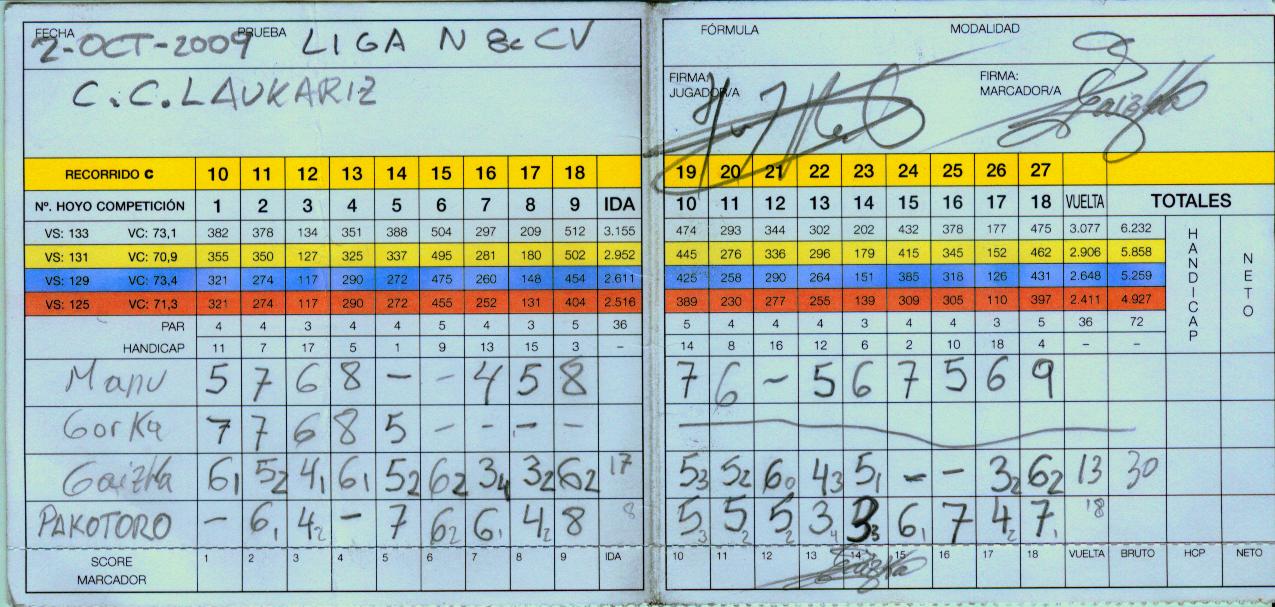 FECHA PRUEBA
2-OCT-2009 LIGA N & CV
C.C. LAUKARIZ
RECORRIDO C 10 11 12 13 14 15 16 17 18
Nº. HOYO COMPETICIÓN 1 2 3 4 5 6 7 8 9 IDA
VS: 133 VC: 73,1 382 378 134 351 388 504 297 209 512 3.155
VS: 131 VC: 70,9 355 350 127 325 337 495 281 180 502 2.952
VS: 129 VC: 73,4 321 274 117 290 272 475 260 148 454 2.611
VS: 125 VC: 71,3 321 274 117 290 272 455 252 131 404 2.516
PAR 4 4 3 4 4 5 4 3 5 36
HANDICAP 11 7 17 5 1 9 13 15 3 –
Manu 5 7 6 8 – – 4 5 8
Gorka 7 7 6 8 5 – – – –
Gaizka 6 1 5 2 4 1 6 1 5 2 6 2 3 4 3 2 6 2 17
PAKOTORO – 6 1 4 2 – 7 6 2 6 1 4 2 8 8
SCORE MARCADOR 1 2 3 4 5 6 7 8 9 IDA
FÓRMULA MODALIDAD
FIRMA: JUGADOR/A FIRMA: MARCADOR/A
Gaizka
19 20 21 22 23 24 25 26 27
10 11 12 13 14 15 16 17 18 VUELTA TOTALES
474 293 344 302 202 432 378 177 475 3.077 6.232
445 276 336 296 179 415 345 152 462 2.906 5.858
425 258 290 264 151 385 318 126 431 2.648 5.259
389 230 277 255 139 309 305 110 397 2.411 4.927
5 4 4 4 3 4 4 3 5 36 72
14 8 16 12 6 2 10 18 4 – –
HANDICAP
NETO
7 6 – 5 6 7 5 6 9
5 3 5 2 6 0 4 3 5 1 – – 3 2 6 2 13 30
5 3 5 2 5 2 3 4 3 3 6 1 7 4 2 7 1 18
10 11 12 13 14 15 16 17 18 VUELTA BRUTO HCP NETO
Gaizka